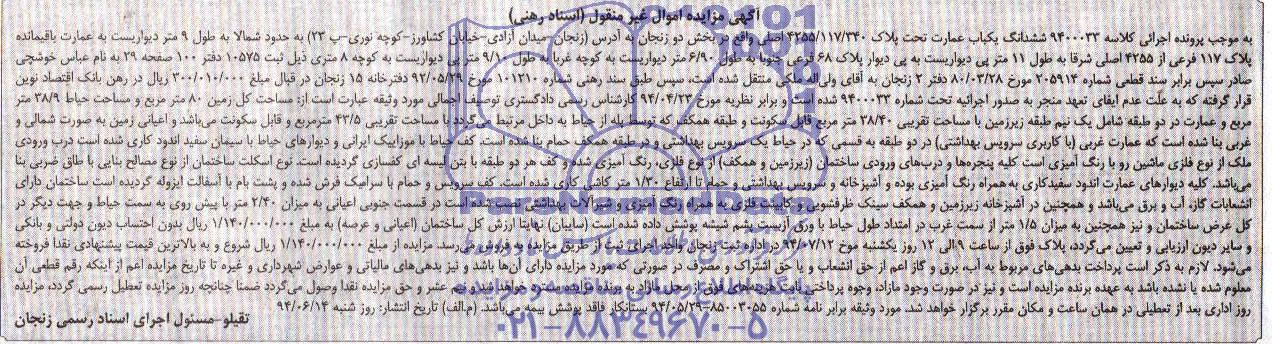 آگهی مزایده اموال غیر منقول (اسناد رهنی)
به موجب پرونده اجرائی کلاسه ۹۴۰۰۰۳۳ ششدانگ یکباب عمارت تحت پلاک ۴۲۵۵/۱۱۷/۳۴۰ اصلی واقع در بخش دو زنجان به آدرس (زنجان–میدان آزادی–خیابان کشاورز–کوچه نوری–پ ۲۳) به حدود شمالا به طول ۹ متر دیواریست به عمارت باقیمانده
پلاک ۱۱۷ فرعی از ۴۲۵۵ اصلی شرقا به طول ۱۱ متر پی دیواریست به پی دیوار پلاک ۶۸ فرعی جنوبا به طول ۶/۹۰ متر دیواریست به کوچه غربا به طول ۹/۱۰ متر پی دیواریست به کوچه ۸ متری ذیل ثبت ۱۰۵۷۵ دفتر ۱۰۰ صفحه ۲۹ به نام عباس خوشچی
صادر سپس برابر سند قطعی شماره ۲۰۵۹۱۴ مورخ ۸۰/۰۳/۲۸ دفتر ۲ زنجان به آقای ولی اله ملکی منتقل شده است، سپس طبق سند رهنی شماره ۱۰۱۲۱۰ مورخ ۹۲/۰۵/۲۹ دفترخانه ۱۵ زنجان در قبال مبلغ ۳۰۰/۰۱۰/۰۰۰ ریال در رهن بانک اقتصاد نوین
قرار گرفته که به علّت عدم ایفای تعهد منجر به صدور اجرائیه تحت شماره ۹۴۰۰۰۳۳ شده است و برابر نظریه مورخ ۹۴/۰۴/۲۳ کارشناس رسمی دادگستری توصیف اجمالی مورد وثیقه عبارت است از: مساحت کل زمین ۸۰ متر مربع و مساحت حیاط ۳۸/۹ متر
مربع و عمارت در دو طبقه شامل یک نیم طبقه زیرزمین با مساحت تقریبی ۳۸/۴۰ متر مربع قابل سکونت و طبقه همکف که توسط پله از حیاط به داخل مرتبط میگردد با مساحت تقریبی ۴۳/۵ مترمربع و قابل سکونت می‌باشد و اعیانی زمین به صورت شمالی و
غربی بنا شده است که عمارت غربی (با کاربری سرویس بهداشتی) در دو طبقه به قسمی که در حیاط یک سرویس بهداشتی و در طبقه همکف حمام بنا شده است. کف حیاط با موزاییک ایرانی و دیوارهای حیاط با سیمان سفید اندود کاری شده است درب ورودی
ملک از نوع فلزی ماشین رو با رنگ آمیزی است کلیه پنجره‌ها و درب‌های ورودی ساختمان (زیرزمین و همکف) از نوع فلزی، رنگ آمیزی شده و کف هر دو طبقه با بتن لیسه ای کفسازی گردیده است. نوع اسکلت ساختمان از نوع مصالح بنایی با طاق ضربی بنا
می‌باشد. کلیه دیوارهای عمارت اندود سفیدکاری به همراه رنگ آمیزی بوده و آشپزخانه و سرویس بهداشتی و حمام تا ارتفاع ۱/۳۰ متر کاشی کاری شده است. کف سرویس و حمام با سرامیک فرش شده و پشت بام با آسفالت ایزوله گردیده است ساختمان دارای
انشعابات گاز، آب و برق می‌باشد و همچنین در آشپزخانه زیرزمین و همکف سینک ظرفشویی و کابینت فلزی به همراه رنگ آمیزی و شیرآلات بهداشتی نصب شده است در قسمت جنوبی اعیانی به میزان ۲/۴۰ متر با پیش روی به سمت حیاط و جهت دیگر در
کل عرض ساختمان و نیز همچنین به میزان ۱/۵ متر از سمت غرب در امتداد طول حیاط با ورق آزبست پشم شیشه پوشش داده شده است (سایبان) نهایتا ارزش کل ساختمان (اعیانی و عرصه) به مبلغ ۱/۱۴۰/۰۰۰/۰۰۰ ریال بدون احتساب دیون دولتی و بانکی
و سایر دیون ارزیابی و تعیین می‌گردد، پلاک فوق از ساعت ۹ الی ۱۲ روز یکشنبه مورخ ۹۴/۰۷/۱۲ در اداره ثبت زنجان واحد اجرای ثبت از طریق مزایده به فروش می‌رسد. مزایده از مبلغ ۱/۱۴۰/۰۰۰/۰۰۰ ریال شروع و به بالاترین قیمت پیشنهادی نقدا فروخته
می‌شود. لازم به ذکر است پرداخت بدهی‌های مربوط به آب، برق و گاز اعم از حق انشعاب و یا حق اشتراک و مصرف در صورتی که مورد مزایده دارای آن‌ها باشد و نیز بدهی‌های مالیاتی و عوارض شهرداری و غیره تا تاریخ مزایده اعم از اینکه رقم قطعی آن
معلوم شده یا نشده باشد به عهده برنده مزایده است و نیز در صورت وجود مازاد، وجوه پرداختی بابت هزینه‌های فوق از محل مازاد به برنده مزایده مسترد خواهد شد و نیم عشر و حق مزایده نقدا وصول می‌گردد ضمنا چنانچه روز مزایده تعطیل رسمی گردد، مزایده
روز اداری بعد از تعطیلی در همان ساعت و مکان مقرر برگزار خواهد شد. مورد وثیقه برابر نامه شماره ۸۵۰۰۳۰۵۵–۹۴/۰۵/۲۹ بستانکار فاقد پوشش بیمه می‌باشد. (م.الف) تاریخ انتشار: روز شنبه ۹۴/۰۶/۱۴
تقیلو–مسئول اجرای اسناد رسمی زنجان
۰۲۱–۸۸۳۴۹۶۷۰–۵